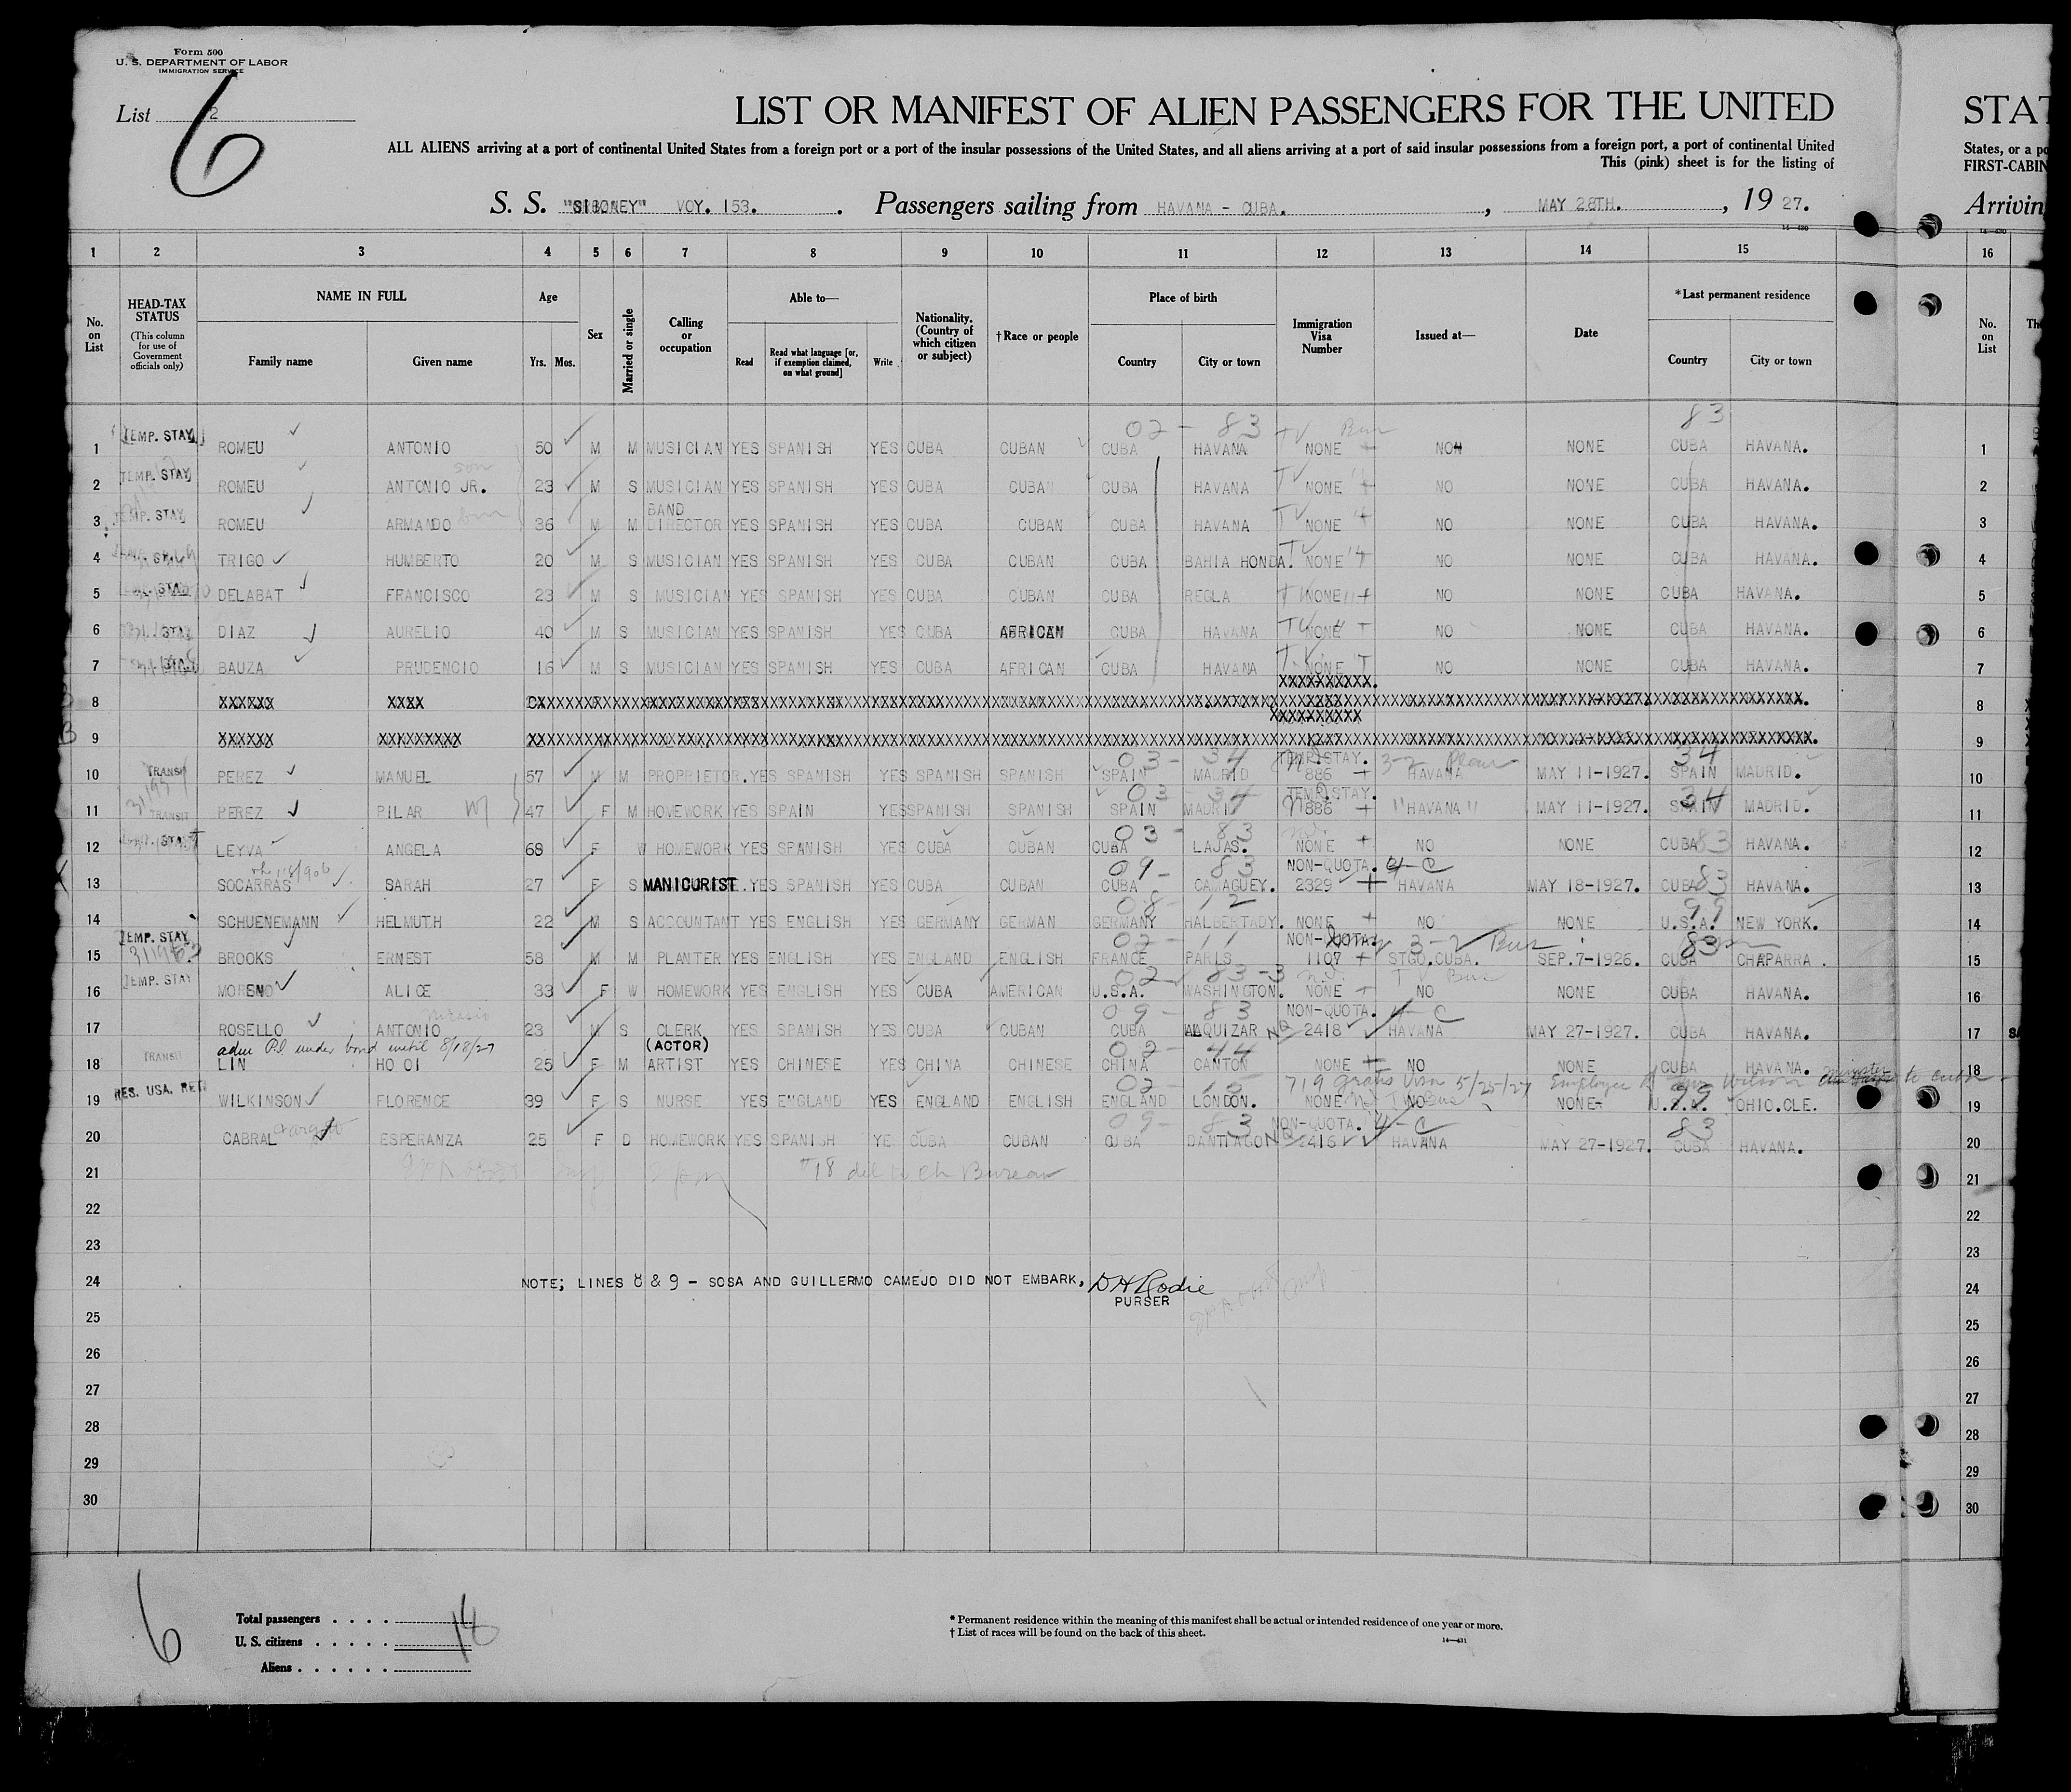 Form 500
U. S. DEPARTMENT OF LABOR
IMMIGRATION SERVICE
List 2
6
LIST OR MANIFEST OF ALIEN PASSENGERS FOR THE UNITED
STAT
ALL ALIENS arriving at a port of continental United States from a foreign port or a port of the insular possessions of the United States, and all aliens arriving at a port of said insular possessions from a foreign port, a port of continental United
States, or a po
This (pink) sheet is for the listing of
FIRST-CABIN
S. S. "SIBONEY" VOY. 153. Passengers sailing from HAVANA - CUBA. , MAY 28TH. , 19 27.
Arrivin
1 2 3 4 5 6 7 8 9 10 11 12 13 14 15 16
No. on List
HEAD-TAX STATUS
(This column for use of Government officials only)
NAME IN FULL
Family name Given name
Age
Yrs. Mos.
Sex
Married or single
Calling or occupation
Able to—
Read Read what language [or, if exemption claimed, on what ground] Write
Nationality. (Country of which citizen or subject)
†Race or people
Place of birth
Country City or town
Immigration Visa Number
Issued at—
Date
*Last permanent residence
Country City or town
No. on List
02 - 83 83
1 TEMP. STAY ROMEU ANTONIO 50 M M MUSICIAN YES SPANISH YES CUBA CUBAN CUBA HAVANA NONE NON NONE CUBA HAVANA. 1
son
2 TEMP. STAY ROMEU ANTONIO JR. 23 M S MUSICIAN YES SPANISH YES CUBA CUBAN CUBA HAVANA NONE NO NONE CUBA HAVANA. 2
3 TEMP. STAY ROMEU ARMANDO 36 M M BAND DIRECTOR YES SPANISH YES CUBA CUBAN CUBA HAVANA NONE NO NONE CUBA HAVANA. 3
4 TRIGO HUMBERTO 20 M S MUSICIAN YES SPANISH YES CUBA CUBAN CUBA BAHIA HONDA. NONE NO NONE CUBA HAVANA. 4
5 DELABAT FRANCISCO 23 M S MUSICIAN YES SPANISH YES CUBA CUBAN CUBA REGLA NONE NO NONE CUBA HAVANA. 5
6 DIAZ AURELIO 40 M S MUSICIAN YES SPANISH YES CUBA AFRICAN CUBA HAVANA NONE NO NONE CUBA HAVANA. 6
7 BAUZA PRUDENCIO 16 M S MUSICIAN YES SPANISH YES CUBA AFRICAN CUBA HAVANA NONE NO NONE CUBA HAVANA. 7
8 8
9 9
03 - 34 TEMP. STAY. 3-2 34
10 TRANSIT PEREZ MANUEL 57 M M PROPRIETOR. YES SPANISH YES SPANISH SPANISH SPAIN MADRID 886 HAVANA MAY 11-1927. SPAIN MADRID. 10
03 - 34 TEMP. STAY. 34
11 TRANSIT PEREZ PILAR 47 F M HOMEWORK YES SPAIN YES SPANISH SPANISH SPAIN MADRID 886 "HAVANA" MAY 11-1927. SPAIN MADRID. 11
03 - 83
12 LEYVA ANGELA 68 F W HOMEWORK YES SPANISH YES CUBA CUBAN CUBA LAJAS. NONE NO NONE CUBA 83 HAVANA. 12
09 - 83 NON-QUOTA. 4-C
13 SOCARRAS SARAH 27 F S MANICURIST. YES SPANISH YES CUBA CUBAN CUBA CAMAGUEY. 2329 HAVANA MAY 18-1927. CUBA 83 HAVANA. 13
08 - 12 99
14 SCHUENEMANN HELMUTH 22 M S ACCOUNTANT YES ENGLISH YES GERMANY GERMAN GERMANY HALBERTADY. NONE NO NONE U.S.A. NEW YORK. 14
02 - 11 NON-QUOTA. 3-2 Bus 83
15 TEMP. STAY BROOKS ERNEST 58 M M PLANTER YES ENGLISH YES ENGLAND ENGLISH FRANCE PARIS 1107 STGO. CUBA. SEP. 7-1926. CUBA CHAPARRA. 15
02 83-3
16 TEMP. STAY MORENO ALICE 33 F W HOMEWORK YES ENGLISH YES CUBA AMERICAN U.S.A. WASHINGTON. NONE NO NONE CUBA HAVANA. 16
09 - 83 NON-QUOTA. 4-C
17 ROSELLO ANTONIO 23 M S CLERK YES SPANISH YES CUBA CUBAN CUBA ALQUIZAR 2418 HAVANA MAY 27-1927. CUBA HAVANA. 17
adm P.I. under bond until 8/18/27
(ACTOR) 02 - 44
18 TRANSIT LIN HO OI 25 F M ARTIST YES CHINESE YES CHINA CHINESE CHINA CANTON NONE NO NONE CUBA HAVANA. 18
02 - 15 719 gratis Visa 5/25/27 Employee 99 to Cuba
19 RES. USA. RET. WILKINSON FLORENCE 39 F S NURSE YES ENGLAND YES ENGLAND ENGLISH ENGLAND LONDON. NONE NO NONE- U.S.A. OHIO.CLE. 19
09 - 83 NON-QUOTA. 4-C 83
20 CABRAL ESPERANZA 25 F D HOMEWORK YES SPANISH YE CUBA CUBAN CUBA SANTIAGO 2416 HAVANA MAY 27-1927. CUBA HAVANA. 20
21 #18 del to Ch Bureau 21
22 22
23 23
24 NOTE; LINES 8 & 9 - SOSA AND GUILLERMO CAMEJO DID NOT EMBARK, DH Rodie 24
PURSER
25 25
26 26
27 27
28 28
29 29
30 30
6
Total passengers . . . .
U. S. citizens . . . . .
Aliens . . . . . .
18
* Permanent residence within the meaning of this manifest shall be actual or intended residence of one year or more.
† List of races will be found on the back of this sheet.
14—431